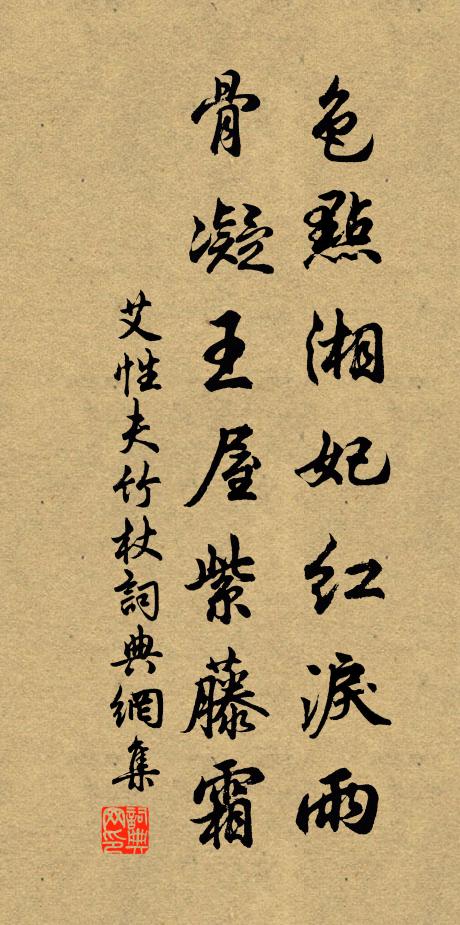 色點湘妃紅淚雨
骨凝王屋紫藤霜
艾性夫竹杖詞典網集
詞典网印